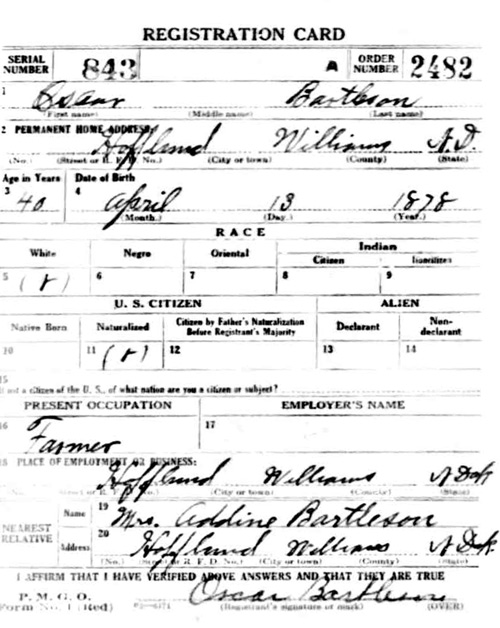 REGISTRATION CARD
SERIAL NUMBER 843 A ORDER NUMBER 2482
1 Oscar Bartleson
(First name) (Middle name) (Last name)
2 PERMANENT HOME ADDRESS:
Hofflund Williams N.D.
(No.) (Street or R. F. D. No.) (City or town) (County) (State)
Age in Years Date of Birth
3 40 4 April 13 1878
(Month.) (Day.) (Year.)
RACE
White Negro Oriental Indian
Citizen
5 6 7 8 9
U. S. CITIZEN ALIEN
Native Born Naturalized Citizen by Father's Naturalization Before Registrant's Majority Declarant Non-declarant
10 11 12 13 14
15
If not a citizen of the U. S., of what nation are you a citizen or subject?
PRESENT OCCUPATION EMPLOYER'S NAME
16 Farmer 17
18 PLACE OF EMPLOYMENT OR BUSINESS:
Hofflund Williams N Dak
(No.) (Street or R. F. D. No.) (City or town) (County) (State)
NEAREST RELATIVE
Name 19 Mrs. Addine Bartleson
Address 20 Hofflund Williams N Dak
(No.) (Street or R. F. D. No.) (City or town) (County) (State)
I AFFIRM THAT I HAVE VERIFIED ABOVE ANSWERS AND THAT THEY ARE TRUE
P. M. G. O.
Form No. 1 (Red) Oscar Bartleson
(Registrant's signature or mark) (OVER)